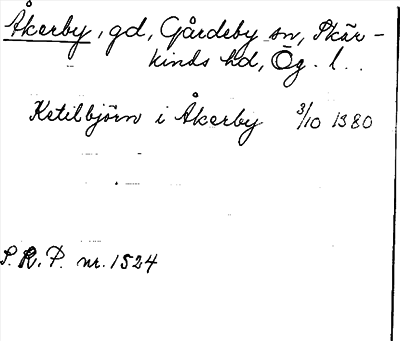 Åkerby, gd, Gårdeby sn, Skär-
kinds hd, Ög. l..
Ketilbjörn i Åkerby 3/10 1380
S.R.P. nr. 1524